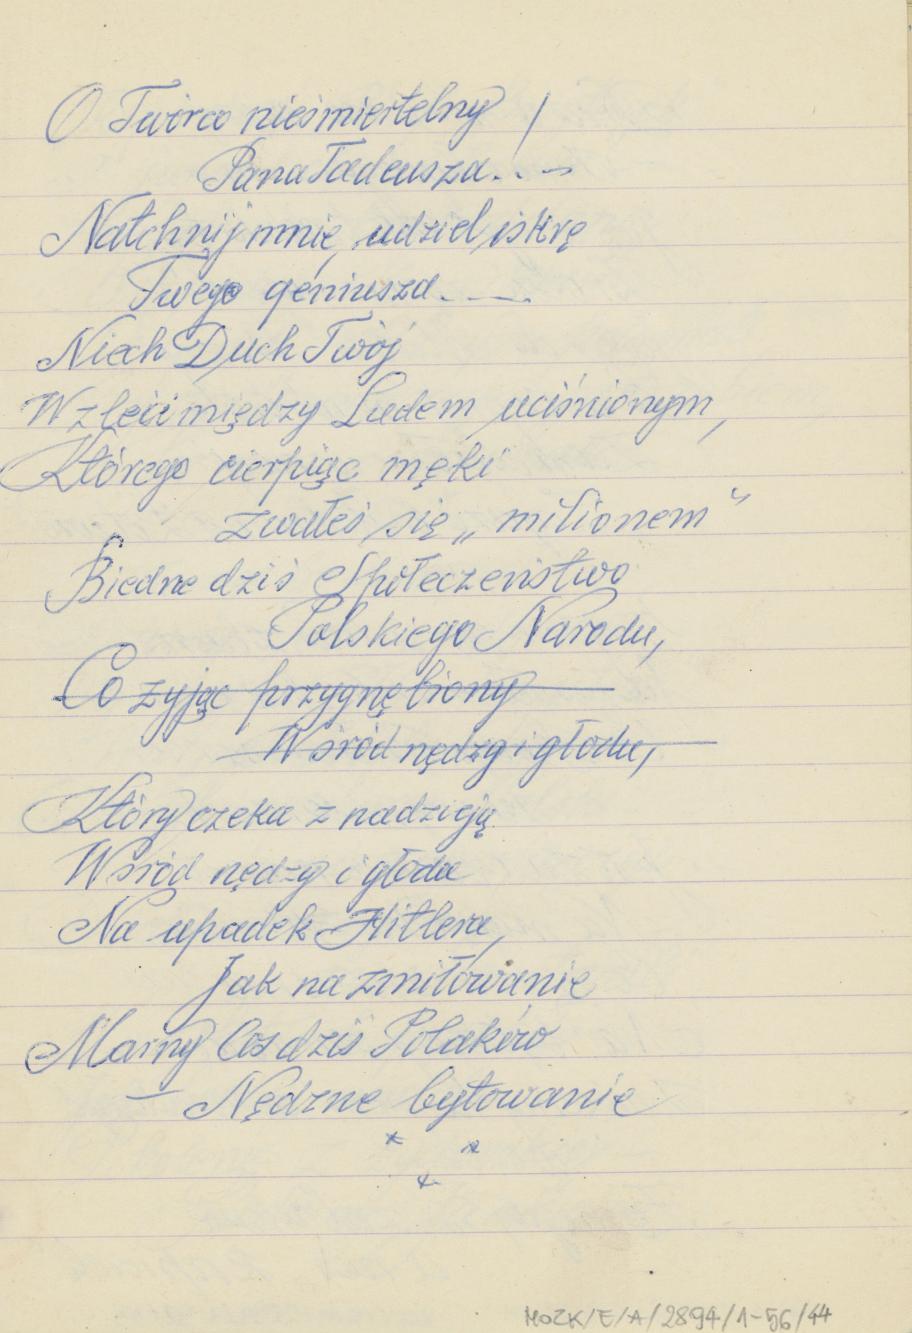 O Twórco nieśmiertelny!
Pana Tadeusza...–
Natchnij mnie, udziel iskrę
Twego geniusza. – . –
Niech Duch Twój
Wzleci między Ludem uciśnionym,
Którego cierpiąc męki
zwałeś się „milionem”
Biedne dziś Społeczeństwo
Polskiego Narodu,
Co żyjąc przygnębiony
Wśród nędzy i głodu,
Który czeka z nadzieją
Wśród nędzy i głodu
Na upadek Hitlera,
Jak na zmiłowanie
Marny los dziś Polaków
– Nędzne bytowanie
* *
*
MOZK/E/A/2894/1-56/44